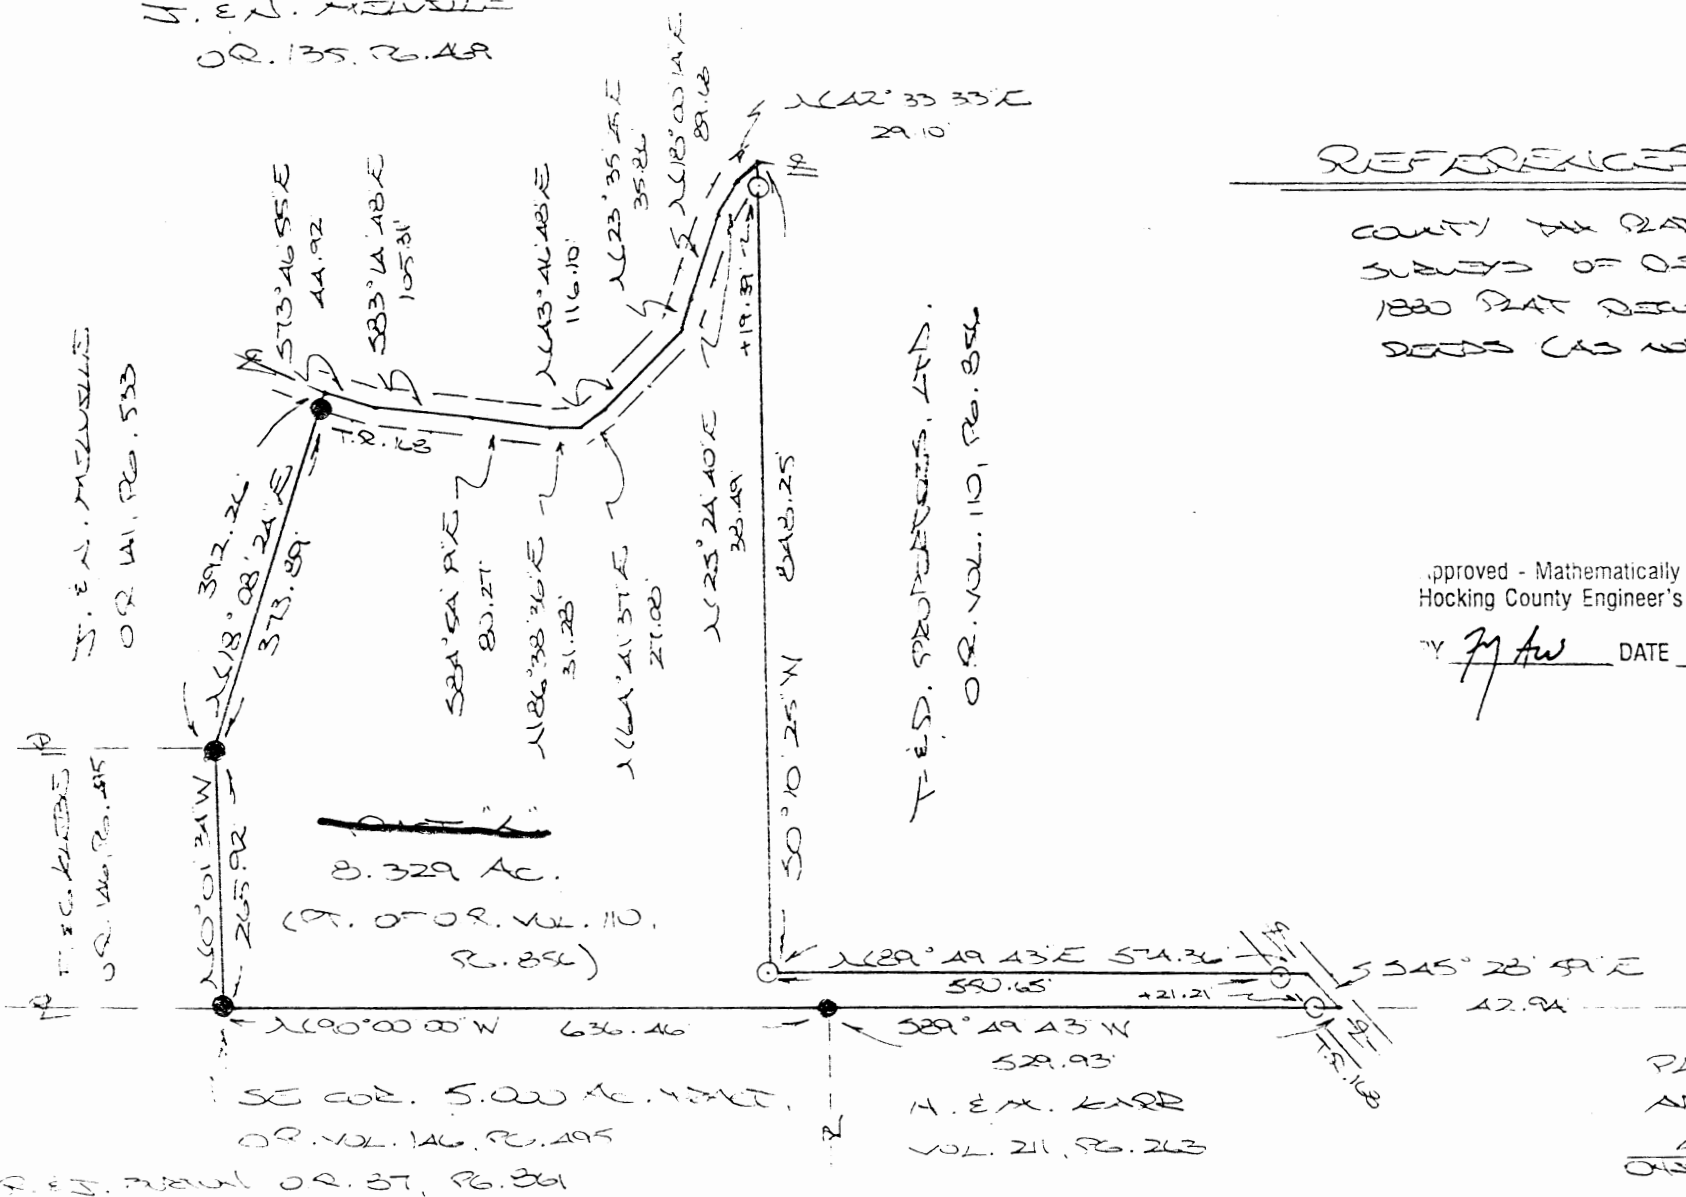 J. & N. MELVILLE
O.R. 135, PG. 469
N 42° 33' 33" E
29.10'
REFERENCES
COUNTY TAX PLAT
SURVEYS OF
1880 PLAT
DEEDS (AS
S 73° 46' 55" E
44.92'
S 83° 14' 48" E
105.31'
N 43° 46' 48" E
116.10'
N 23° 35' 25" E
35.86'
N 18° 00' 14" E
89.63'
+19.39'
J. & N. MELVILLE
O.R. 141, PG. 533
T.R. 168
392.26'
N 18° 08' 24" E
373.89'
S 84° 54' 19" E
80.27'
N 86° 38' 36" E
31.28'
N 64° 41' 37" E
27.00'
N 25° 24' 40" E
38.49'
848.25'
S 0° 10' 25" W
T. & D. PROPERTIES, LTD.
O.R. VOL. 110, PG. 856
pproved - Mathematically
Hocking County Engineer's
BY DATE
O.R. 146, PG. 495
N 0° 01' 34" W
265.92'
8.329 AC.
(PT. OF O.R. VOL. 110,
PG. 856)
N 89° 49' 43" E 574.36'
550.65'
+21.21'
S 45° 28' 59" E
42.94'
N 90° 00' 00" W 636.46'
S 89° 49' 43" W
529.93'
T.R. 168
SE COR. 5.000 AC. TRACT,
O.R. VOL. 146, PG. 495
H. & M. KARR
VOL. 211, PG. 263
O.R. 37, PG. 361